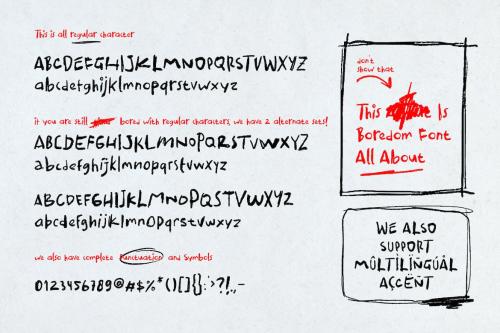 This is all regular character
ABCDEFGHIJKLMNOPQRSTUVWXYZ
abcdefghijklmnopqrstuvwxyz
if you are still bored with regular characters, we have 2 alternate sets!
ABCDEFGHIJKLMNOPQRSTUVWXYZ
abcdefghijklmnopqrstuvwxyz
ABCDEFGHIJKLMNOPQRSTUVWXYZ
abcdefghijklmnopqrstuvwxyz
we also have complete Punctuation and Symbols
0123456789@#$%*()[]{}:;>?!.,-
don't
show that
This Is
Boredom Font
All About
WE ALSO
SUPPORT
MÛLTÌLÏÑGÚÁL
AÇCËÑT